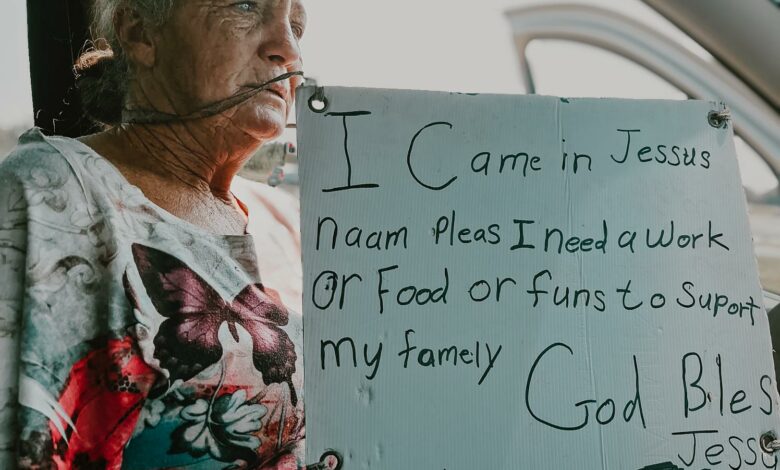 I Came in Jessus
naam Pleas I need a work
Or Food or funs to Suport
my famely
God Bles